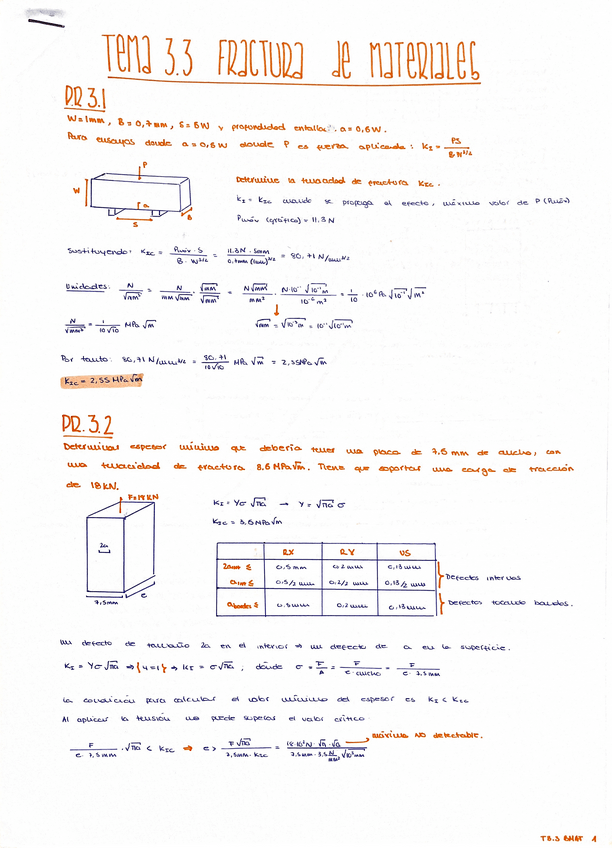 TEMA 3.3 FRACTURA de MATERIALES
P.R 3.1
W=1mm, B=0,7mm, S=5W y profundidad entalla: a=0,5W.
Para ensayos donde a=0,5W donde P es fuerza aplicada: K_I = PS / B W^3/2
P
W
a
S
B
Determine la tenacidad de fractura K_IC.
K_I = K_IC cuando se propaga el defecto, máximo valor de P (Pmáx)
Pmáx (gráfico) = 11.3 N
Sustituyendo: K_IC = Pmáx · S / B · W^3/2 = 11.3N · 5mm / 0,7mm (1mm)^3/2 = 80,71 N/mm^3/2
Unidades: N / √mm³ = N / mm √mm · √mm / √mm = N√mm / mm² = N·10⁻¹ √10⁻¹m / 10⁻⁶ m² = 1/10 · 10⁶ Pa √10⁻¹ √m²
N / √mm³ = 1 / 10√10 MPa √m
√mm = √10⁻³m = 10⁻¹√10⁻¹m
Por tanto: 80,71 N/mm^3/2 = 80.71 / 10√10 MPa √m = 2,55MPa √m
K_IC = 2,55 MPa √m
PR.3.2
Determinar espesor mínimo que debería tener una placa de 7.5 mm de ancho, con
una tenacidad de fractura 8.6 MPa√m. Tiene que soportar una carga de tracción
de 18 KN.
F=18 KN
2a
7,5mm
e
K_I = Yσ √πa → Y = √πa σ
K_IC = 3,5 MPa √m
RX RY US
2aint ≤ 0.5 mm 0.2 mm 0,13 mm
aint ≤ 0.5/2 mm 0.2/2 mm 0,13/2 mm
Defectos internos
aborde ≤ 0.5mm 0.2 mm 0.13mm
Defectos tocando bordes.
Un defecto de tamaño 2a en el interior ⇒ un defecto de a en la superficie.
K_I = Yσ √πa ⇒ {Y=1} ⇒ K_I = σ√πa, donde σ = F/A = F / e·ancho = F / e·7.5mm
La condición para calcular el valor mínimo del espesor es K_I < K_IC
Al aplicar la tensión no puede superar el valor crítico
máximo NO detectable.
F / e·7,5mm · √πa < K_IC ⇒ e > F √πa / 7,5mm · K_IC = 18·10³N · √π · √a / 7.5mm · 3.5 N/mm² √10³mm
T3.3 BMAT 1